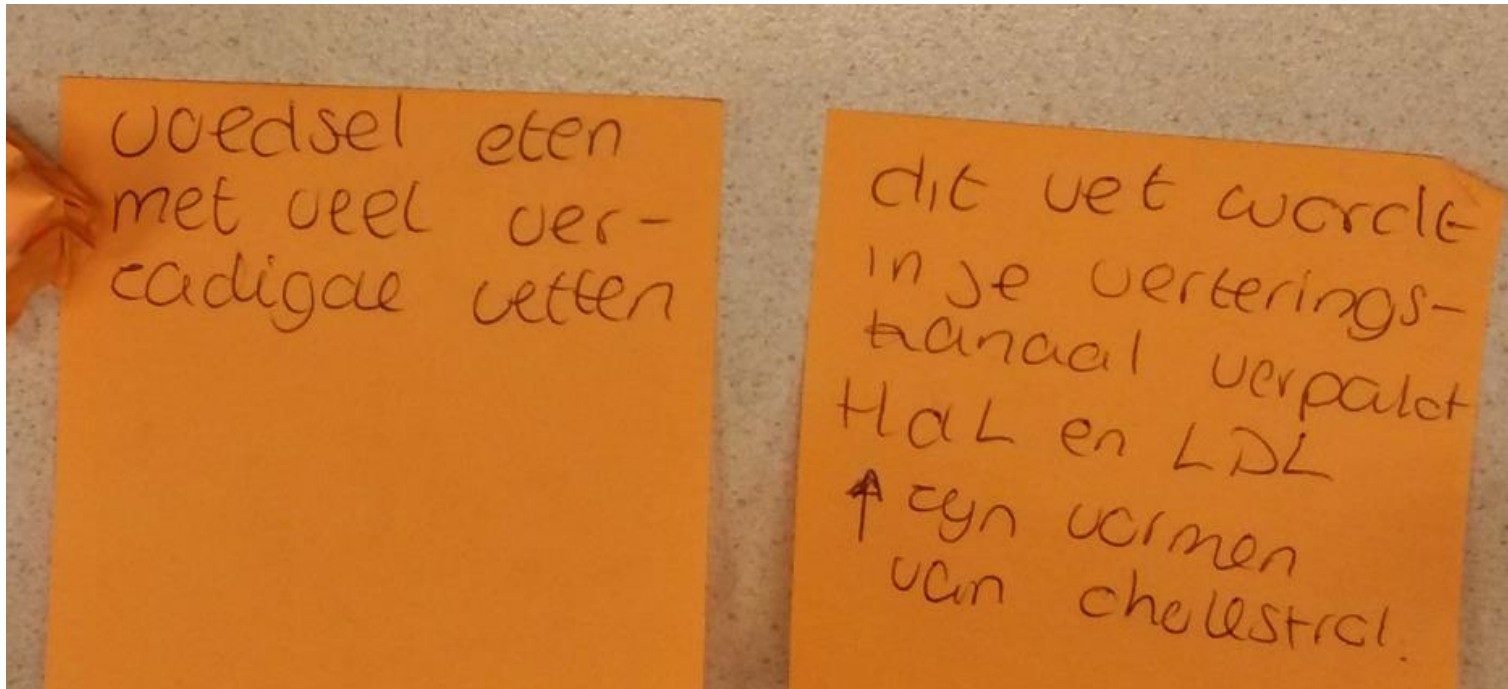 voedsel eten
met veel ver-
zadigde vetten
dit vet wordt
in je verterings-
kanaal verpakt
HdL en LDL
↑ zijn vormen
van cholestrol.